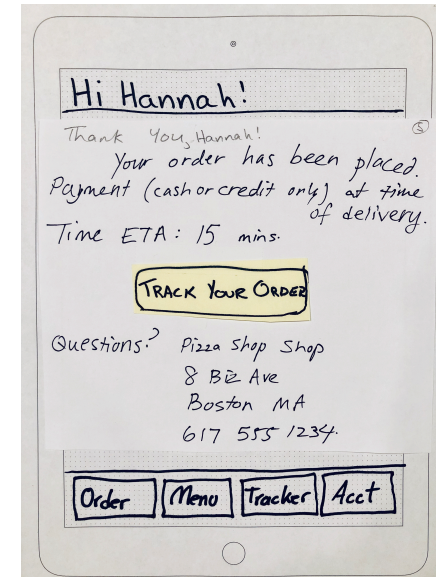 Hi Hannah!
Thank You, Hannah!
5
Your order has been placed.
Payment (cash or credit only) at time
of delivery.
Time ETA: 15 mins.
TRACK YOUR ORDER
Questions? Pizza Shop Shop
8 Biz Ave
Boston MA
617 555 1234.
Order Menu Tracker Acct